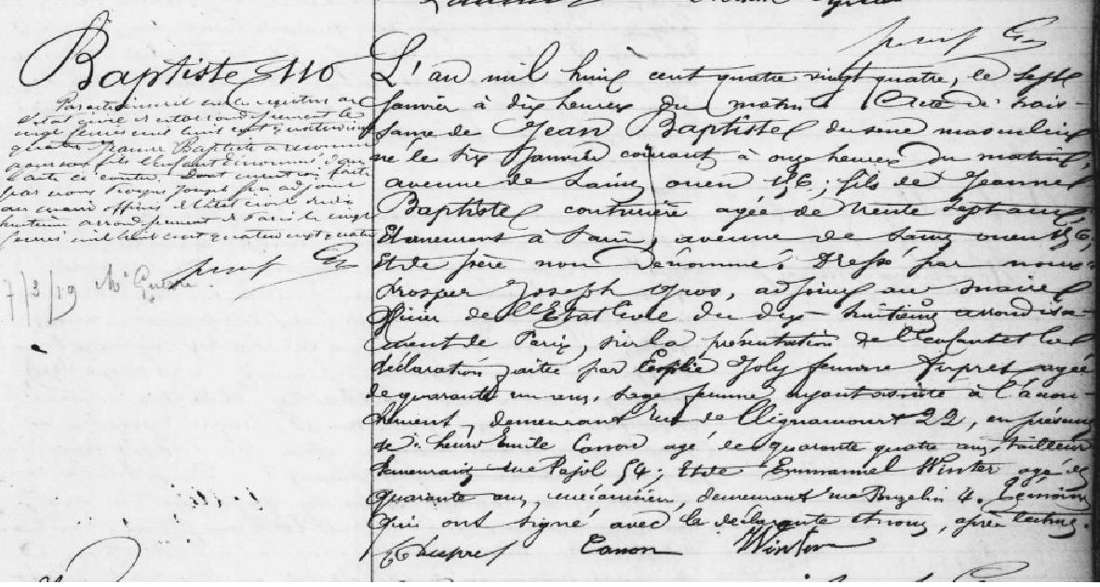 Baptiste 110
Par acte inscrit sur le registre de
l'Etat civil de cet arrondissement le
vingt février mil huit cent quatre vingt
quatre Jeanne Baptiste a reconnu
pour son fils l'enfant dénommé dans
l'acte ci contre. Dont mention faite
par nous Prosper Joseph Gros adjoint
au maire officier de l'Etat civil du dix
huitième arrondissement de Paris le vingt
février mil huit cent quatre vingt quatre
7/3/19 Me
L'an mil huit cent quatre vingt quatre, le sept
Janvier à dix heures du matin. Acte de nais-
sance de Jean Baptiste du sexe masculin
né le six Janvier courant à onze heures du matin,
avenue de Saint ouen 156; fils de Jeanne
Baptiste couturière agée de trente sept ans
demeurant à Paris, avenue de Saint ouen 156,
Et de père non dénommé. Dressé par nous
Prosper Joseph Gros, adjoint au maire
officier de l'Etat Civil du dix-huitième arrondisse-
ment de Paris, sur la présentation de l'enfant et la
déclaration faite par Joly femme agée
de quarante un ans, sage femme, ayant assisté à l'accou-
chement, demeurant rue de Clignancourt 22, en présence
de: henri Emile Canon agé de quarante quatre ans, tailleur
demeurant rue Pajol 54; Et de Emmanuel Winter agé de
quarante ans, mécanicien, demeurant rue 4. témoins
qui ont signé avec la déclarante et nous, après lecture.
Canon Winter